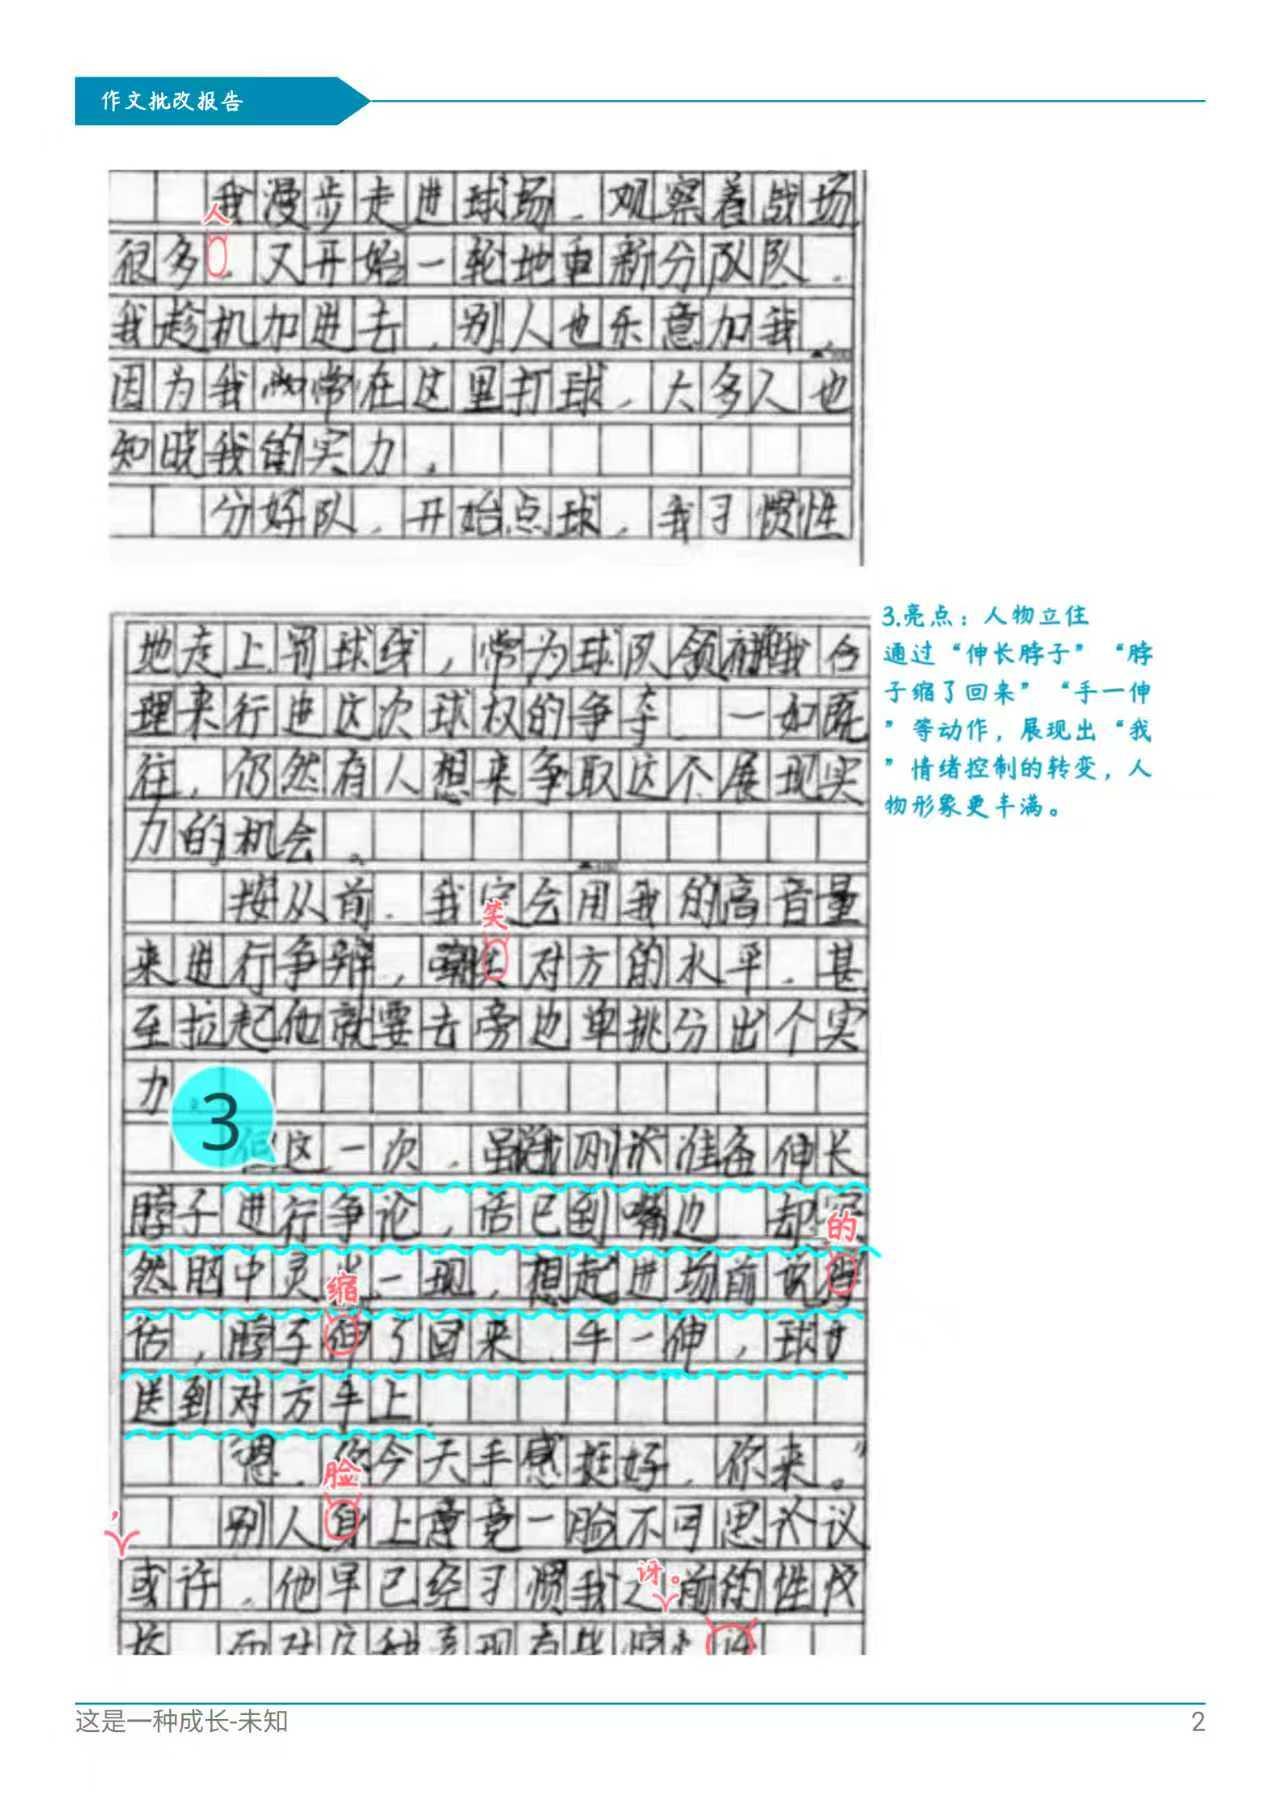 作文批改报告
我漫步走进球场，观察着战场
人
很多。又开始一轮地重新分队队．
我趁机加进去，别人也乐意加我，
因为我常在这里打球，大多人也
知晓我的实力。
分好队，开始点球，我习惯性
地走上罚球线，常为球队领我合
理来行进这次球权的争夺 一如既
往，仍然有人想来争取这个展现实
力的机会。
按从前，我定会用我的高音量
笑
来进行争辩，嘲对方的水平，甚
至拉起他就要去旁边单挑分出个实
力
3
但这一次，虽我刚准备伸长
脖子进行争论，话已到嘴边 却
的
然脑中灵光一现，想起进场前说
缩
话，脖子伸了回来 手一伸，球才
送到对方手上
你今天手感挺好，你来。”
脸
别人身上竟一脸不可思议
，
或许，他早已经习惯我之前的性
讶。
3.亮点：人物立住
通过“伸长脖子”“脖
子缩了回来”“手一伸
”等动作，展现出“我
”情绪控制的转变，人
物形象更丰满。
这是一种成长-未知
2